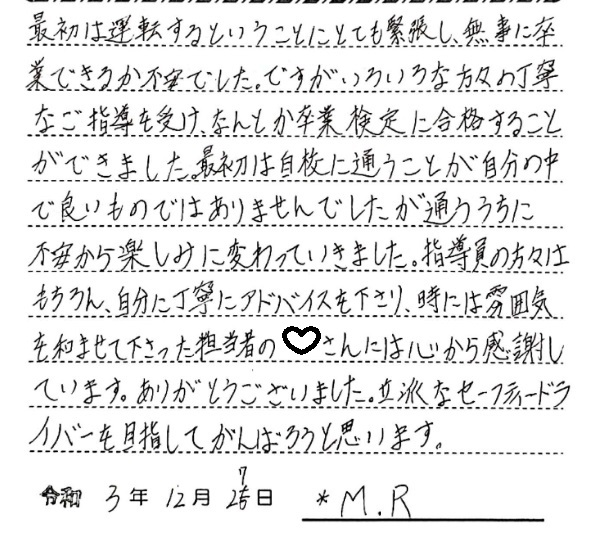 最初は運転するということにとても緊張し、無事に卒
業できるか不安でした。ですがいろいろな方々の丁寧
なご指導を受け、なんとか卒業検定に合格すること
ができました。最初は自校に通うことが自分の中
で良いものではありませんでしたが通ううちに
不安から楽しみに変わっていきました。指導員の方々は
もちろん、自分に丁寧にアドバイスを下さり、時には雰囲気
を和ませて下さった担当者の♡さんには心から感謝し
ています。ありがとうございました。立派なセーフティードラ
イバーを目指してがんばろうと思います。
令和 3年 12月 27日 *M.R